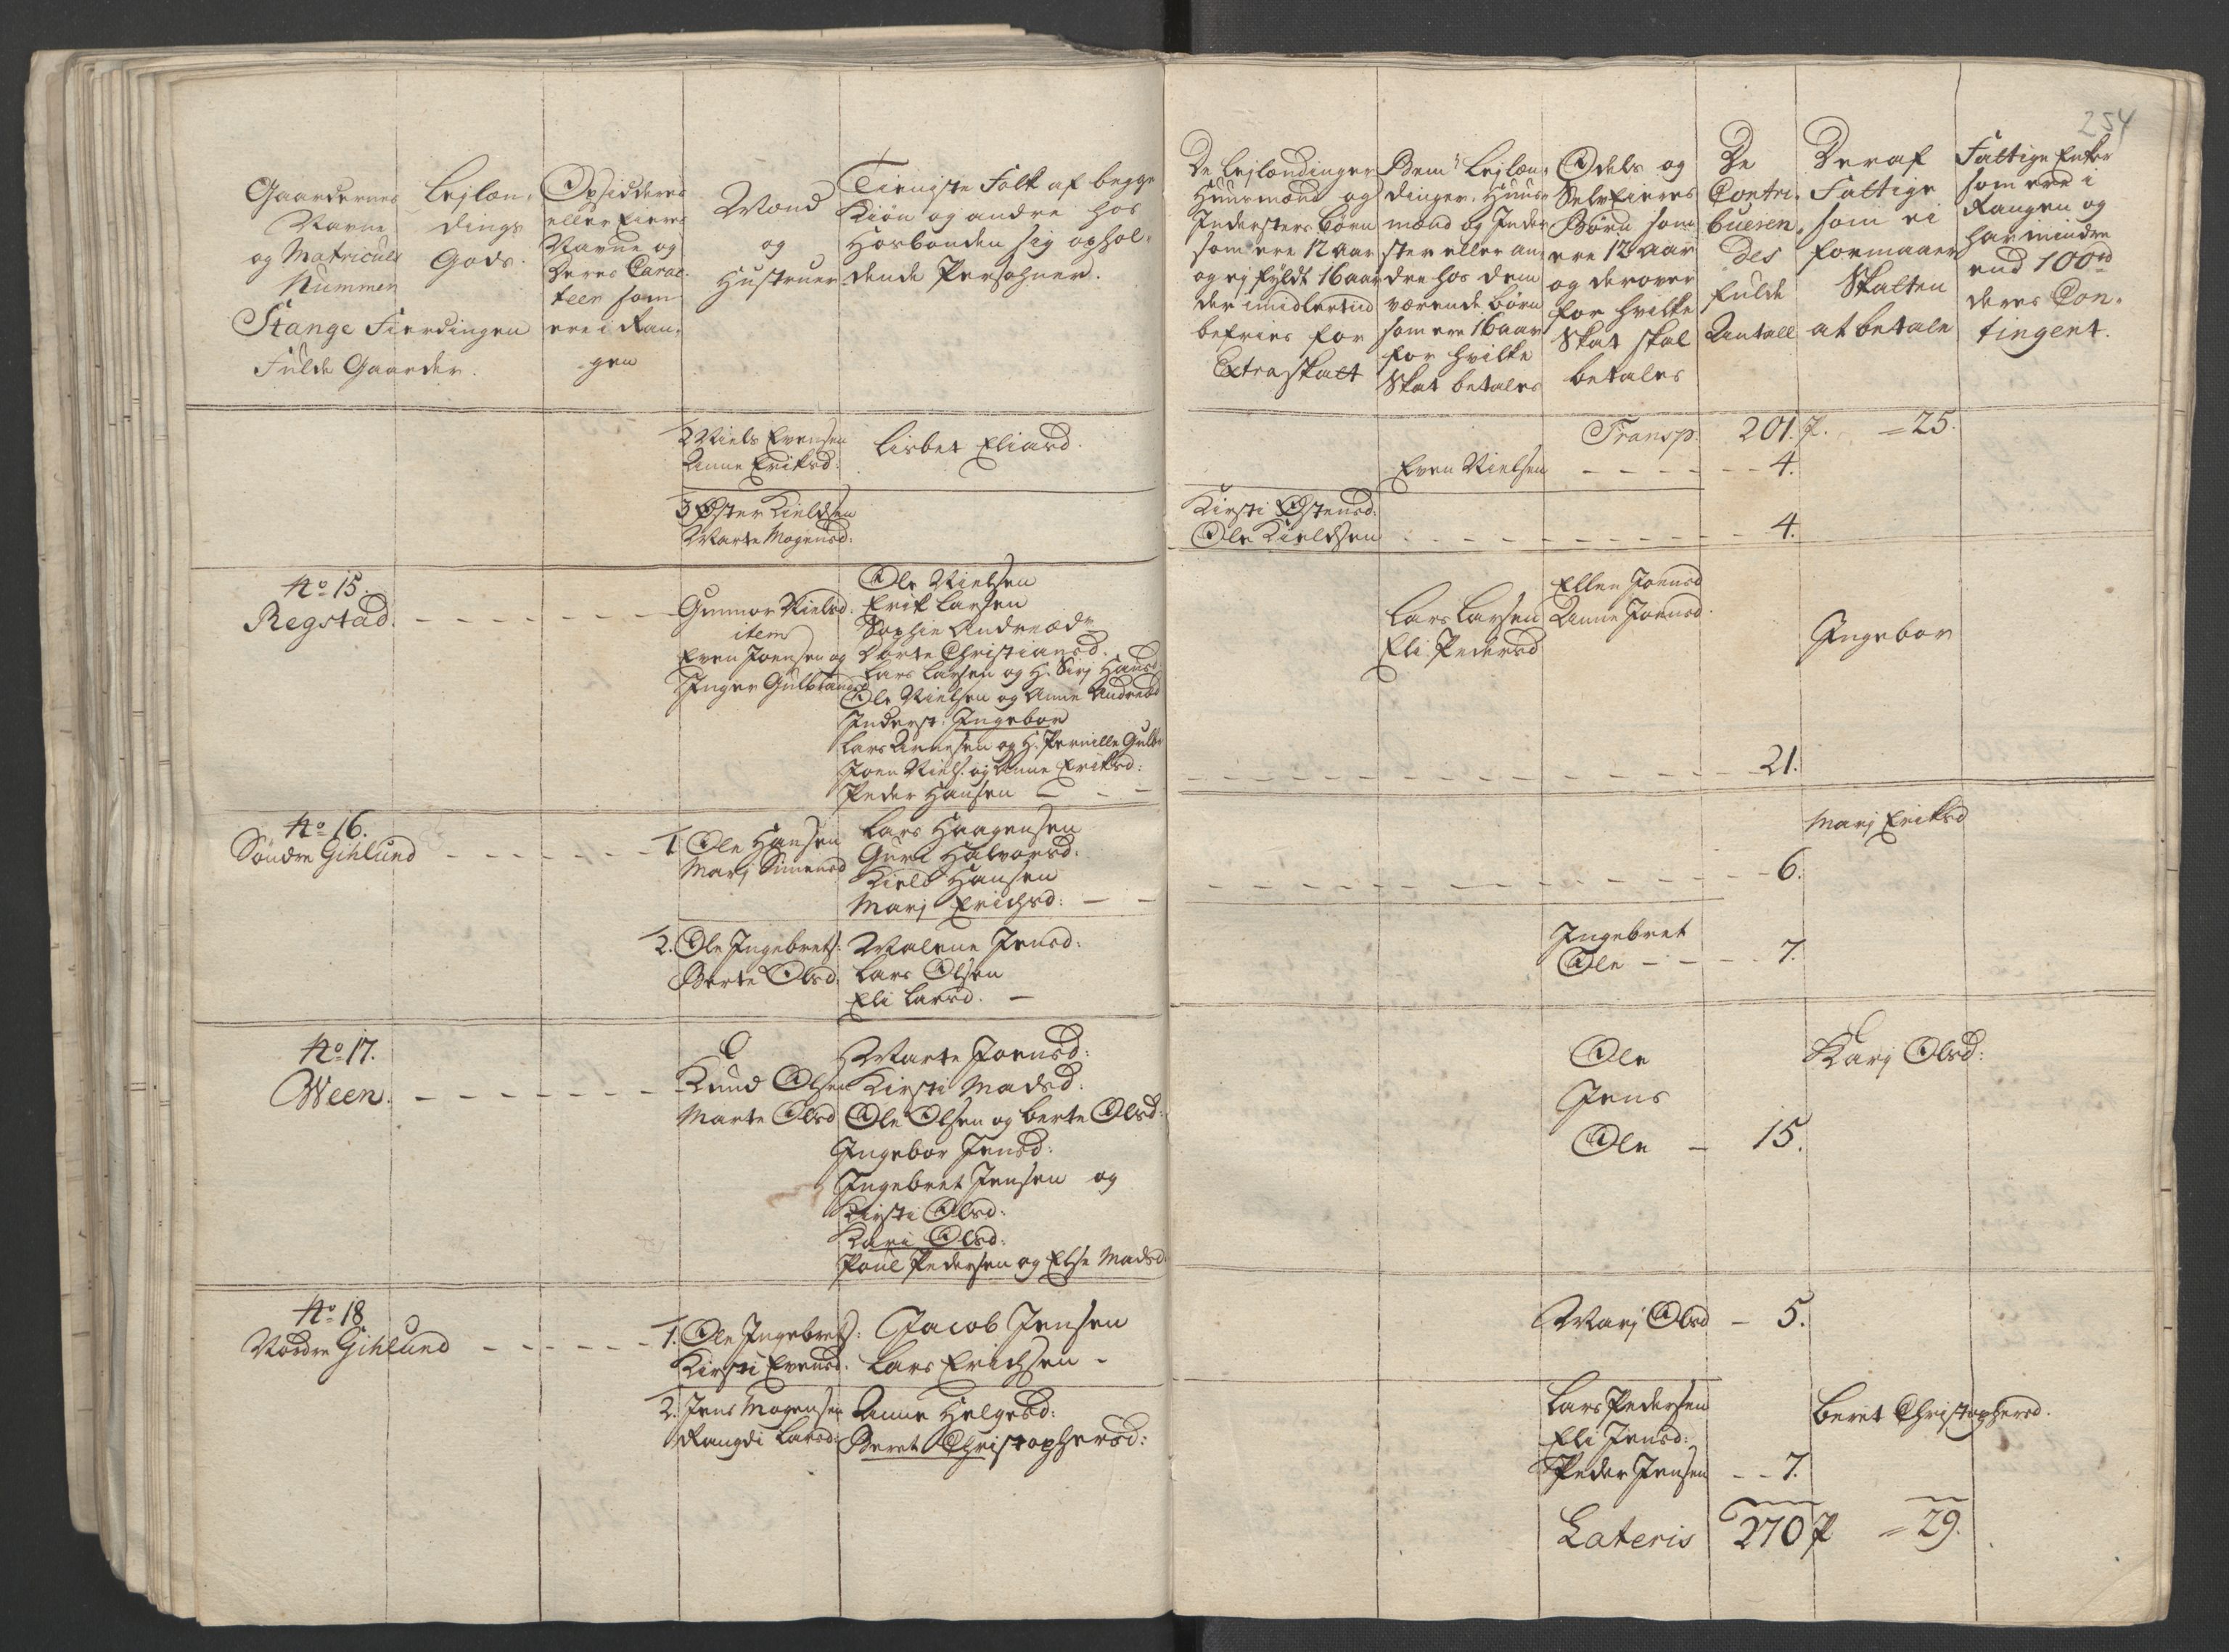 254
Gaardernes
Navne
og Matriculs
Nummer
Stange Fierdingen
Fulde Gaarder.
Lejlæn-
dings
Gods.
Opsiddernes
eller Eieres
Navne og
deres Carac-
teer som
ere i Ran-
gen
Mænd
og
Hustruer
Tieniste Folk af begge
Kiøn og andre hos
Hosbonden sig ophol-
dende Persohner.
De Lejlændinger
Huusmænd og
Indersters Børn
som ere 12 aar
og ej fyldt 16 aar
der imidlertid
befries for
Extraskatt
Bem: Lejlæn-
dinger, Huus-
mænd og Inder-
ster eller an-
dre hos dem
værende børn
som ere 16 aar
for hvilke
Skat betales
Odels og
Selveieres
Børn som
ere 12 aar
og derover
for hvilke
Skat skal
betales
De
Contri-
bueren-
des
fulde
Antall
Deraf
Fattige
som ei
formaaer
Skatten
at betale
Fattige Enker
som ere i
Rangen og
har mindre
end 100 rd
deres Con-
tingent.
Transp. 201. P. = 25.
2 Niels Evensen
Anne Eriksd:
Lisbet Eliasd.
Even Nielsen - - - - - 4.
3 Østen Kieldsen
Marte Mogensd:
Kirsti Østensd:
Ole Kieldsen - - - - - 4.
No 15.
Regstad. - - - - - - -
Gunnor Nielsd.
item
Even Joensen og
Inger Gulbrandsd
Ole Nielsen
Erik Larsen
Sophie Andreæd
Dorte Christiansd.
Lars Larsen og H. Sirj Hansd
Ole Nielsen og Anne Andreæd
Inderst: Ingebor
Lars Arnesen og H. Pernille Gulbr
Joen Niels: og Anne Eriksd:
Peder Hansen - - -
Lars Larsen
Eli Pedersd
Ellen Joensd
Anne Joensd.
Ingebor
- - - - - 21.
No 16.
Søndre Gihlund - - - - - -
1. Ole Hansen
Marj Simensd
Lars Haagensen
Guri Halvorsd:
Kield Hansen
Marj Erichsd: - -
Marj Eriksd
- - - - - 6.
2. Ole Ingebrets:
Berte Olsd:
Malene Jensd:
Lars Olsen
Eli Larsd. -
Ingebret
Ole - - - - 7.
No 17.
Ween. - - - - - - -
Knud Olsen
Marte Olsd
Marte Joensd:
Kirsti Madsd:
Ole Olsen og Berte Olsd:
Ingebor Jensd:
Ingebret Jensen og
Kirsti Olsd:
Kari Olsd:
Poul Pedersen og Else Madsd.
Ole
Jens
Ole - 15.
Karj Olsd:
No 18
Nordre Gihlund - - - - -
1. Ole Ingebrets:
Kirsti Evensd.
Jacob Jensen
Lars Erichsen -
Marj Olsd - 5.
2. Jens Mogensen
Rangdi Larsd:
Anne Helgesd:
Beret Christophersd:
Lars Pedersen
Eli Jensd:
Peder Jensen - - 7.
Beret Christophersd.
Lateris 270 P = 29.